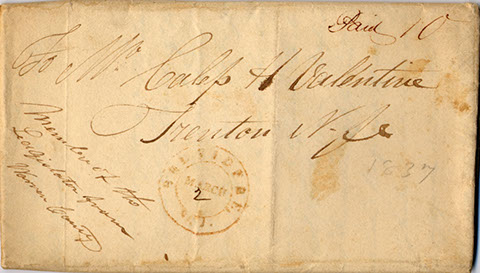 Paid 10
To Mr. Caleb H Valentine
Trenton N. Je
Member of the
Legislature from
Warren County
BELVIDERE
MARCH
2
N.J.
1837